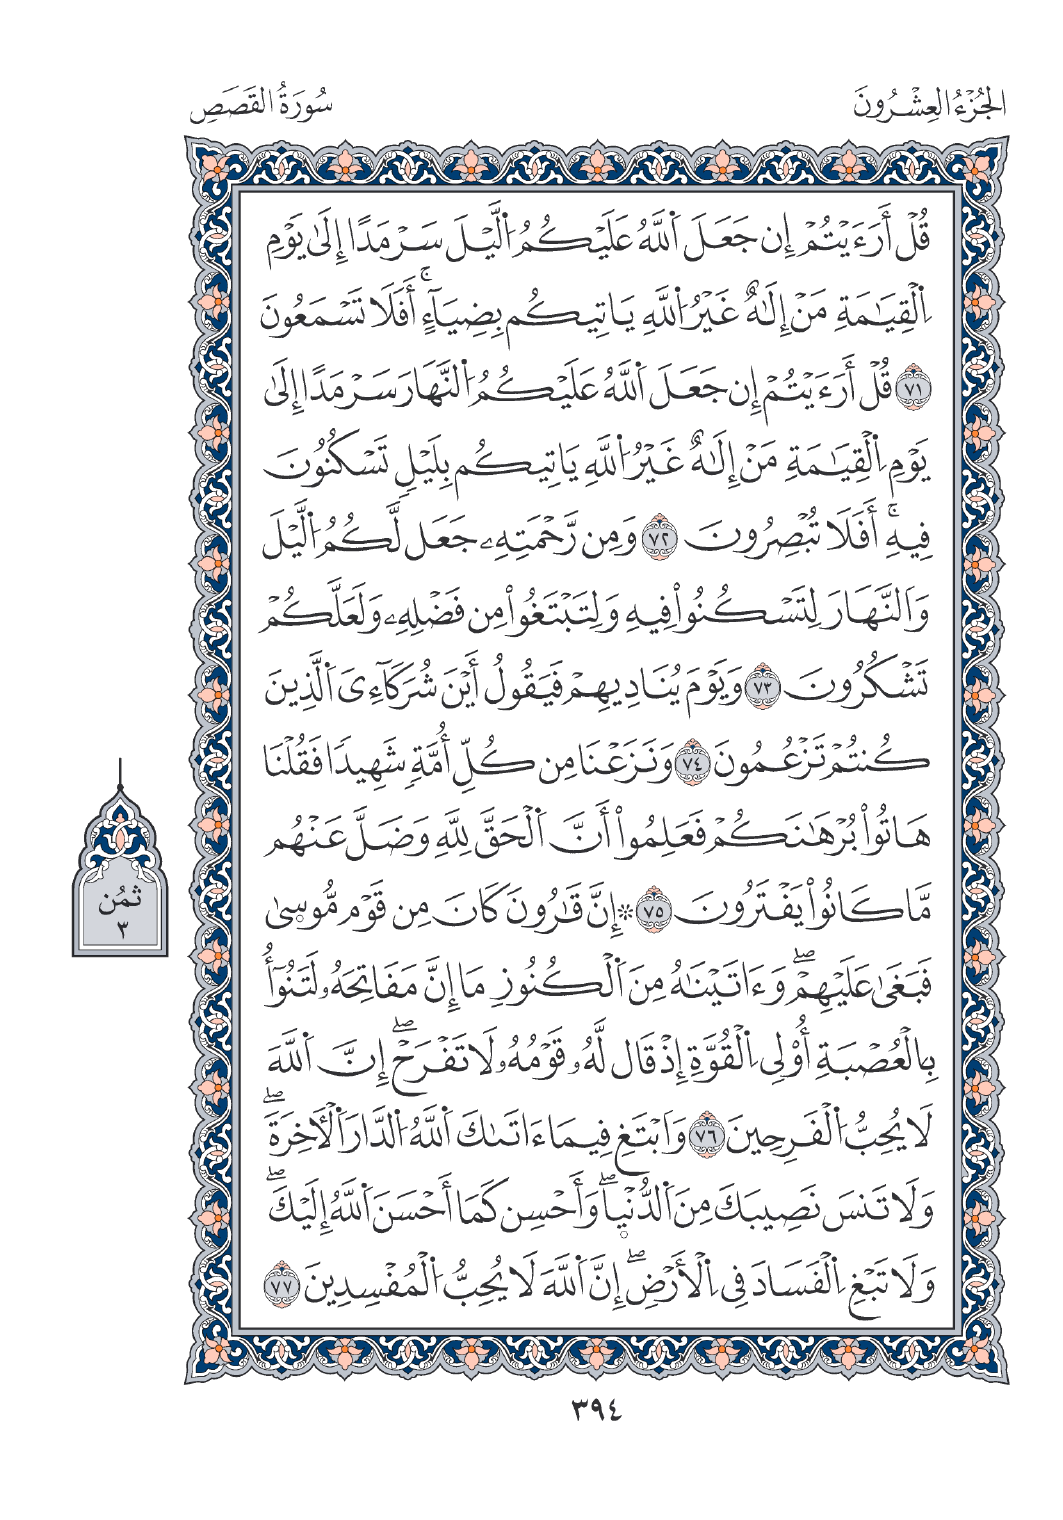 الجُزْءُ العِشْرُونَ
سُورَةُ القَصَصِ
قُلْ أَرَءَيْتُمْ إِن جَعَلَ اَ۬للَّهُ عَلَيْكُمُ اُ۬ليْلَ سَرْمَداً إِلَىٰ يَوْمِ
اِ۬لْقِيَٰمَةِ مَنْ إِلَٰهٌ غَيْرُ اُ۬للَّهِ يَاتِيكُم بِضِيَآءٍۚ أَفَلَا تَسْمَعُونَ
٧١ قُلْ أَرَءَيْتُمْ إِن جَعَلَ اَ۬للَّهُ عَلَيْكُمُ اُ۬لنَّهَارَ سَرْمَداً إِلَىٰ
يَوْمِ اِ۬لْقِيَٰمَةِ مَنْ إِلَٰهٌ غَيْرُ اُ۬للَّهِ يَاتِيكُم بِلَيْلٖ تَسْكُنُونَ
فِيهِۚ أَفَلَا تُبْصِرُونَ ٧٢ وَمِن رَّحْمَتِهِۦ جَعَل لَّكُمُ اُ۬ليْلَ
وَالنَّهَارَ لِتَسْكُنُواْ فِيهِ وَلِتَبْتَغُواْ مِن فَضْلِهِۦ وَلَعَلَّكُمْ
تَشْكُرُونَ ٧٣ وَيَوْمَ يُنَادِيهِمْ فَيَقُولُ أَيْنَ شُرَكَآءِىَ اَ۬لذِينَ
كُنتُمْ تَزْعُمُونَ ٧٤ وَنَزَعْنَا مِن كُلِّ أُمَّةٖ شَهِيداً فَقُلْنَا
هَاتُواْ بُرْهَٰنَكُمْ فَعَلِمُواْ أَنَّ اَ۬لْحَقَّ لِلَّهِ وَضَلَّ عَنْهُم
مَّا كَانُواْ يَفْتَرُونَ ٧٥ ۞إِنَّ قَٰرُونَ كَانَ مِن قَوْم مُّوس۪ىٰ
فَبَغَىٰ عَلَيْهِمْۖ وَءَاتَيْنَٰهُ مِنَ اَ۬لْكُنُوزِ مَا إِنَّ مَفَاتِحَهُۥ لَتَنُوٓأُ
بِالْعُصْبَةِ أُوْلِى اِ۬لْقُوَّةِ إِذْ قَال لَّهُۥ قَوْمُهُۥ لَا تَفْرَحْۖ إِنَّ اَ۬للَّهَ
لَا يُحِبُّ اُ۬لْفَرِحِينَ ٧٦ وَابْتَغِ فِيمَا ءَاتَىٰكَ اَ۬للَّهُ اُ۬لدَّارَ اَ۬لْأٓخِرَةَۖ
وَلَا تَنسَ نَصِيبَكَ مِنَ اَ۬لدُّنْي۪اۖ وَأَحْسِن كَمَا أَحْسَنَ اَ۬للَّهُ إِلَيْكَۖ
وَلَا تَبْغِ اِ۬لْفَسَادَ فِى اِ۬لْأَرْضِۖ إِنَّ اَ۬للَّهَ لَا يُحِبُّ اُ۬لْمُفْسِدِينَ ٧٧
ثمُن
٣
٣٩٤